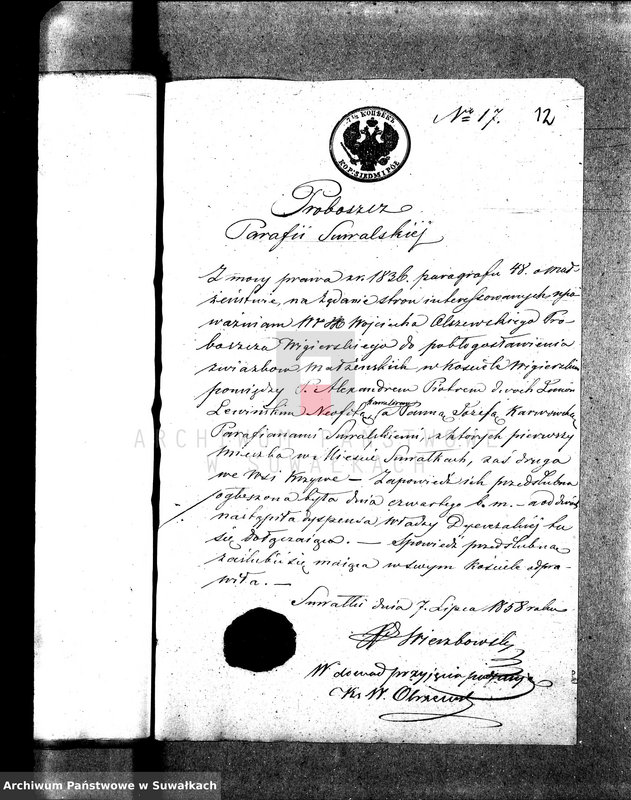 7½ КОПѢЕКЪ
KOP: SIEDM I PÓŁ
Nr 17. 12
Proboszcz
Parafii Suwalskiéj
Z mocy prawa z r. 1836. paragrafu 48. o Mał-
żeństwie, na żądanie stron interessowanych upo-
ważniam Wojciecha Olszewskiego Pro-
boszcza Wigierskiego do pobłogosławienia
związków małżeńskich, w Kościele Wigierskim
pomiędzy P. Alexandrem Piotrem dwoch Imion
kawalerem
Lewińskim Neofitą, a Panną Józefą Karwowską
Parafianami Suwalskiemi, z których pierwszy
mieszka w Mieście Suwałkach, zaś druga
we Wsi Krzywe – Zapowiedź ich przedślubna
ogłoszona była dnia czwartego b. m. – a od dwóch
nastąpiła dyspensa Władzy Dyecezalnéj tu
się dołączająca. – Spowiedź przedślubna
zaślubić się mająca w swym Kościele odpra-
wiła. –
Suwałki dnia 7. Lipca 1858 roku
Wierzbowski
W dowód przyjęcia
Ks. W. Olszewski
ARCHIWUM PAŃSTWOWE
W SUWAŁKACH
Archiwum Państwowe w Suwałkach